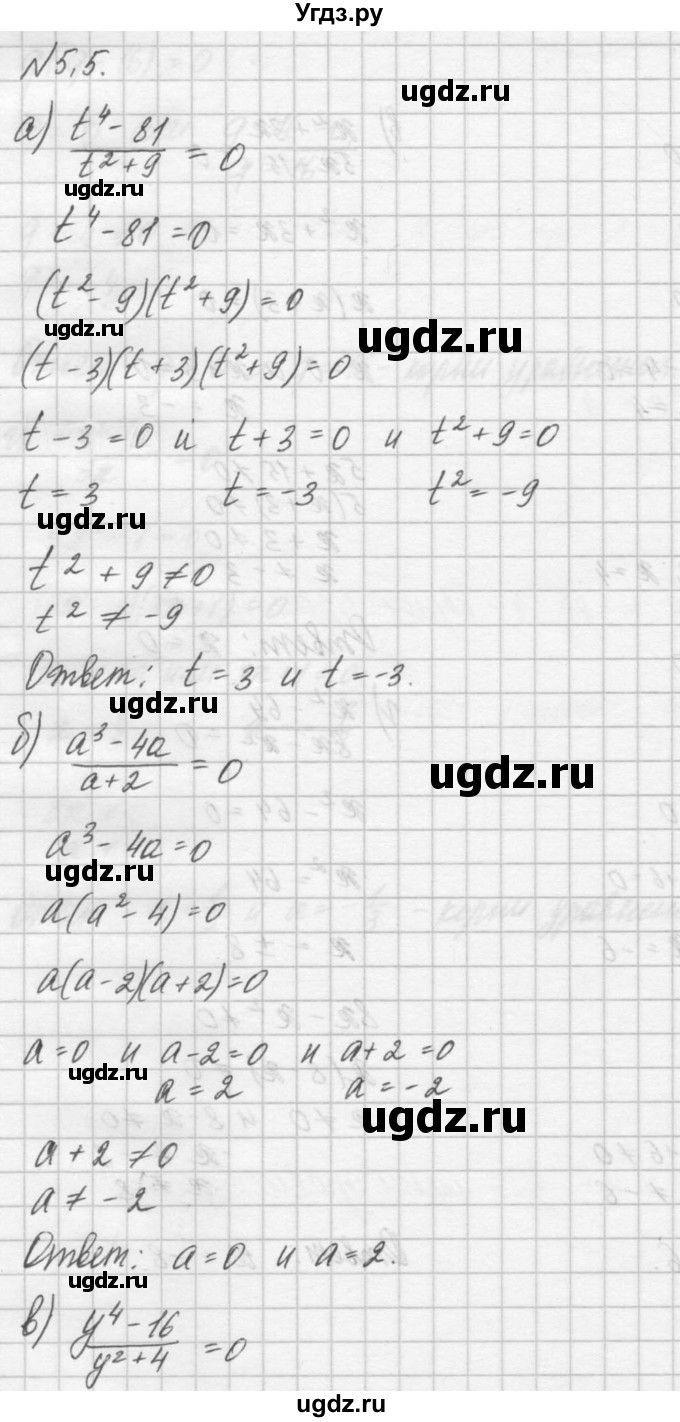 Угдз.ру
N5,5.
ugdz.ru
а) (t⁴ - 81)/(t² + 9) = 0
ugdz.ru
t⁴ - 81 = 0
(t² - 9)(t² + 9) = 0
ugdz.ru
ugdz.ru
(t - 3)(t + 3)(t² + 9) = 0
t - 3 = 0 и t + 3 = 0 и t² + 9 = 0
t = 3 t = -3 t² = -9
ugdz.ru
t² + 9 ≠ 0
t² ≠ -9
Ответ: t = 3 и t = -3.
ugdz.ru
б) (a³ - 4a)/(a + 2) = 0
ugdz.ru
a³ - 4a = 0
ugdz.ru
a(a² - 4) = 0
a(a - 2)(a + 2) = 0
a = 0 и a - 2 = 0 и a + 2 = 0
ugdz.ru
a = 2 a = -2
ugdz.ru
a + 2 ≠ 0
a ≠ -2
Ответ: a = 0 и a = 2.
ugdz.ru
в) (y⁴ - 16)/(y² + 4) = 0
ugdz.ru